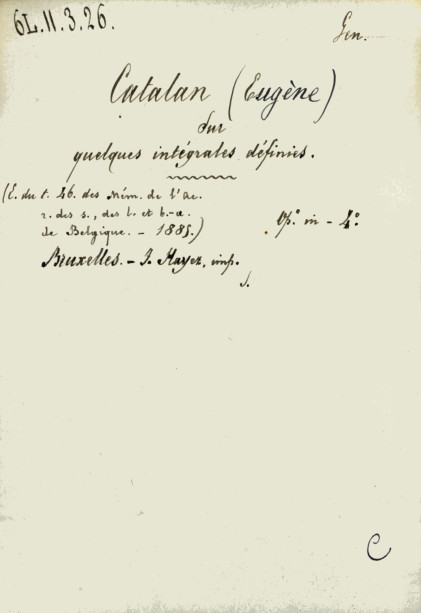 6L.11.3.26.
Gen.
Catalan (Eugène)
Sur
quelques intégrales définies.
(E. du t. 46. des Mém. de l'Ac.
r. des s., des l. et b.-a.
de Belgique. - 1885.)
Op.º in - 4.º
Bruxelles. - F. Hayez, imp.
s.
C